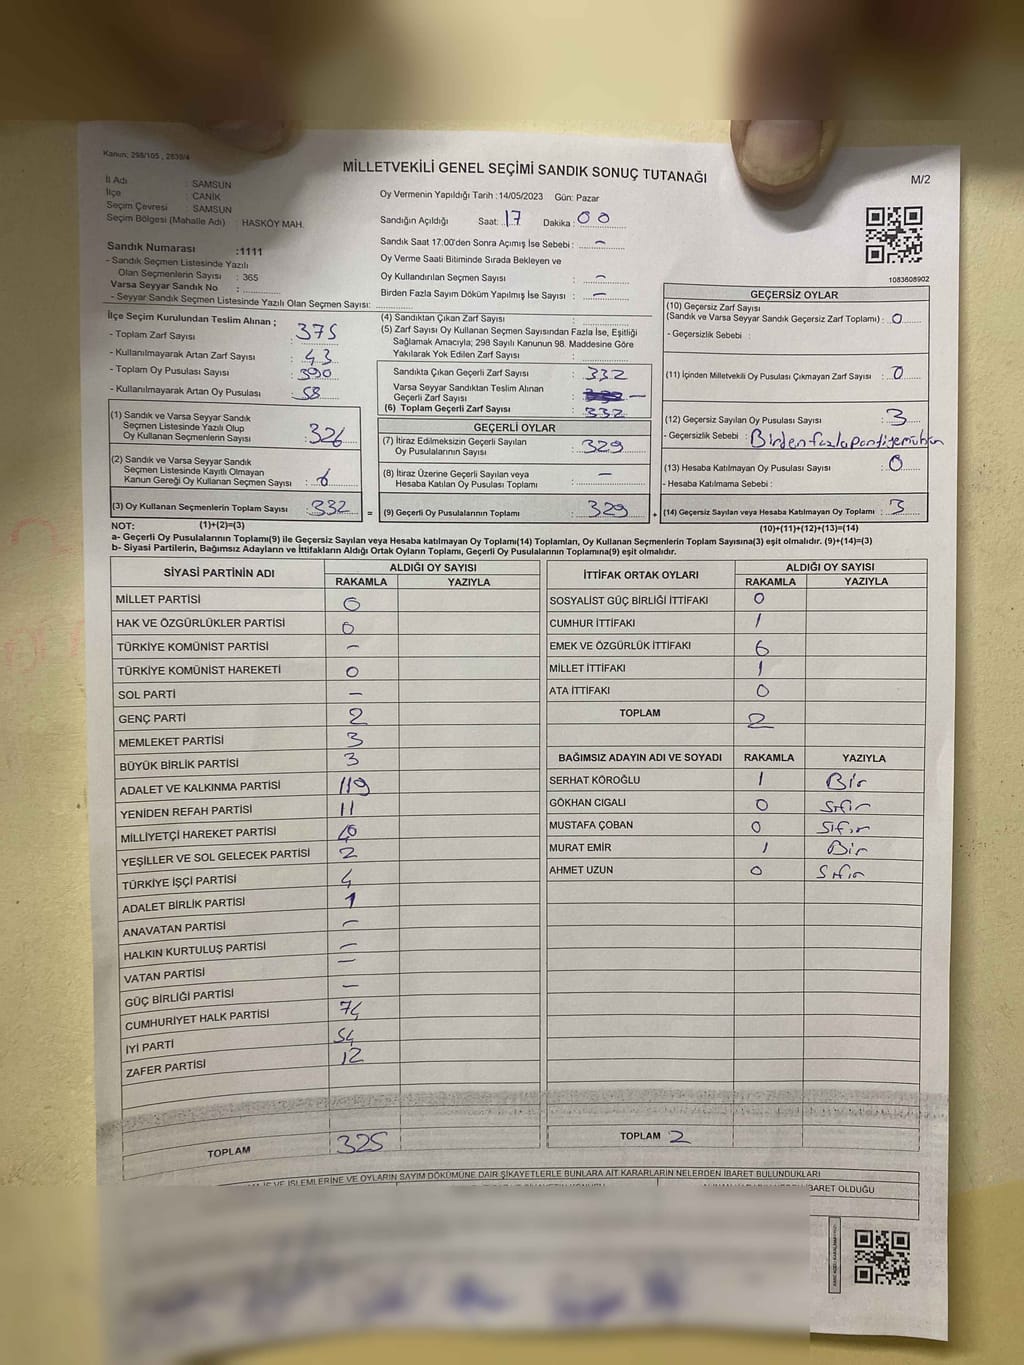 Kanun: 298/105 , 2839/4
MİLLETVEKİLİ GENEL SEÇİMİ SANDIK SONUÇ TUTANAĞI
M/2
İl Adı : SAMSUN
İlçe : CANİK
Seçim Çevresi : SAMSUN
Seçim Bölgesi (Mahalle Adı) : HASKÖY MAH.
Sandık Numarası :1111
- Sandık Seçmen Listesinde Yazılı
Olan Seçmenlerin Sayısı : 365
Varsa Seyyar Sandık No :
- Seyyar Sandık Seçmen Listesinde Yazılı Olan Seçmen Sayısı:
Oy Vermenin Yapıldığı Tarih :14/05/2023 Gün: Pazar
Sandığın Açıldığı Saat: 17 Dakika : 00
Sandık Saat 17:00'den Sonra Açımış İse Sebebi : -
Oy Verme Saati Bitiminde Sırada Bekleyen ve
Oy Kullandırılan Seçmen Sayısı : -
Birden Fazla Sayım Döküm Yapılmış İse Sayısı : -
1083608902
İlçe Seçim Kurulundan Teslim Alınan ;
- Toplam Zarf Sayısı : 375
- Kullanılmayarak Artan Zarf Sayısı : 43
- Toplam Oy Pusulası Sayısı : 390
- Kullanılmayarak Artan Oy Pusulası : 58
(1) Sandık ve Varsa Seyyar Sandık
Seçmen Listesinde Yazılı Olup
Oy Kullanan Seçmenlerin Sayısı : 326
(2) Sandık ve Varsa Seyyar Sandık
Seçmen Listesinde Kayıtlı Olmayan
Kanun Gereği Oy Kullanan Seçmen Sayısı : 6
(3) Oy Kullanan Seçmenlerin Toplam Sayısı : 332
(4) Sandıktan Çıkan Zarf Sayısı :
(5) Zarf Sayısı Oy Kullanan Seçmen Sayısından Fazla İse, Eşitliği
Sağlamak Amacıyla; 298 Sayılı Kanunun 98. Maddesine Göre
Yakılarak Yok Edilen Zarf Sayısı :
Sandıkta Çıkan Geçerli Zarf Sayısı : 332
Varsa Seyyar Sandıktan Teslim Alınan
Geçerli Zarf Sayısı : -
(6) Toplam Geçerli Zarf Sayısı : 332
GEÇERLİ OYLAR
(7) İtiraz Edilmeksizin Geçerli Sayılan
Oy Pusulalarının Sayısı : 329
(8) İtiraz Üzerine Geçerli Sayılan veya
Hesaba Katılan Oy Pusulası Toplamı : -
= (9) Geçerli Oy Pusulalarının Toplamı : 329
GEÇERSİZ OYLAR
(10) Geçersiz Zarf Sayısı
(Sandık ve Varsa Seyyar Sandık Geçersiz Zarf Toplamı) : 0
- Geçersizlik Sebebi :
(11) İçinden Milletvekili Oy Pusulası Çıkmayan Zarf Sayısı : 0
(12) Geçersiz Sayılan Oy Pusulası Sayısı : 3
- Geçersizlik Sebebi : Birden fazla partiye mühür
(13) Hesaba Katılmayan Oy Pusulası Sayısı : 0
- Hesaba Katılmama Sebebi :
+ (14) Geçersiz Sayılan veya Hesaba Katılmayan Oy Toplamı : 3
NOT: (1)+(2)=(3)
(10)+(11)+(12)+(13)=(14)
a- Geçerli Oy Pusulalarının Toplamı(9) ile Geçersiz Sayılan veya Hesaba katılmayan Oy Toplamı(14) Toplamları, Oy Kullanan Seçmenlerin Toplam Sayısına(3) eşit olmalıdır. (9)+(14)=(3)
b- Siyasi Partilerin, Bağımsız Adayların ve İttifakların Aldığı Ortak Oyların Toplamı, Geçerli Oy Pusulalarının Toplamına(9) eşit olmalıdır.
SİYASİ PARTİNİN ADI ALDIĞI OY SAYISI
RAKAMLA YAZIYLA
MİLLET PARTİSİ 0
HAK VE ÖZGÜRLÜKLER PARTİSİ 0
TÜRKİYE KOMÜNİST PARTİSİ -
TÜRKİYE KOMÜNİST HAREKETİ 0
SOL PARTİ -
GENÇ PARTİ 2
MEMLEKET PARTİSİ 3
BÜYÜK BİRLİK PARTİSİ 3
ADALET VE KALKINMA PARTİSİ 119
YENİDEN REFAH PARTİSİ 11
MİLLİYETÇİ HAREKET PARTİSİ 40
YEŞİLLER VE SOL GELECEK PARTİSİ 2
TÜRKİYE İŞÇİ PARTİSİ 4
ADALET BİRLİK PARTİSİ 1
ANAVATAN PARTİSİ -
HALKIN KURTULUŞ PARTİSİ -
VATAN PARTİSİ -
GÜÇ BİRLİĞİ PARTİSİ -
CUMHURİYET HALK PARTİSİ 74
İYİ PARTİ 54
ZAFER PARTİSİ 12
TOPLAM 325
İTTİFAK ORTAK OYLARI ALDIĞI OY SAYISI
RAKAMLA YAZIYLA
SOSYALİST GÜÇ BİRLİĞİ İTTİFAKI 0
CUMHUR İTTİFAKI 1
EMEK VE ÖZGÜRLÜK İTTİFAKI 6
MİLLET İTTİFAKI 1
ATA İTTİFAKI 0
TOPLAM 2
BAĞIMSIZ ADAYIN ADI VE SOYADI RAKAMLA YAZIYLA
SERHAT KÖROĞLU 1 Bir
GÖKHAN CIGALI 0 Sıfır
MUSTAFA ÇOBAN 0 Sıfır
MURAT EMİR 1 Bir
AHMET UZUN 0 Sıfır
TOPLAM 2
VE İŞLEMLERİNE VE OYLARIN SAYIM DÖKÜMÜNE DAİR ŞİKAYETLERLE BUNLARA AİT KARARLARIN NELERDEN İBARET BULUNDUKLARI
İBARET OLDUĞU